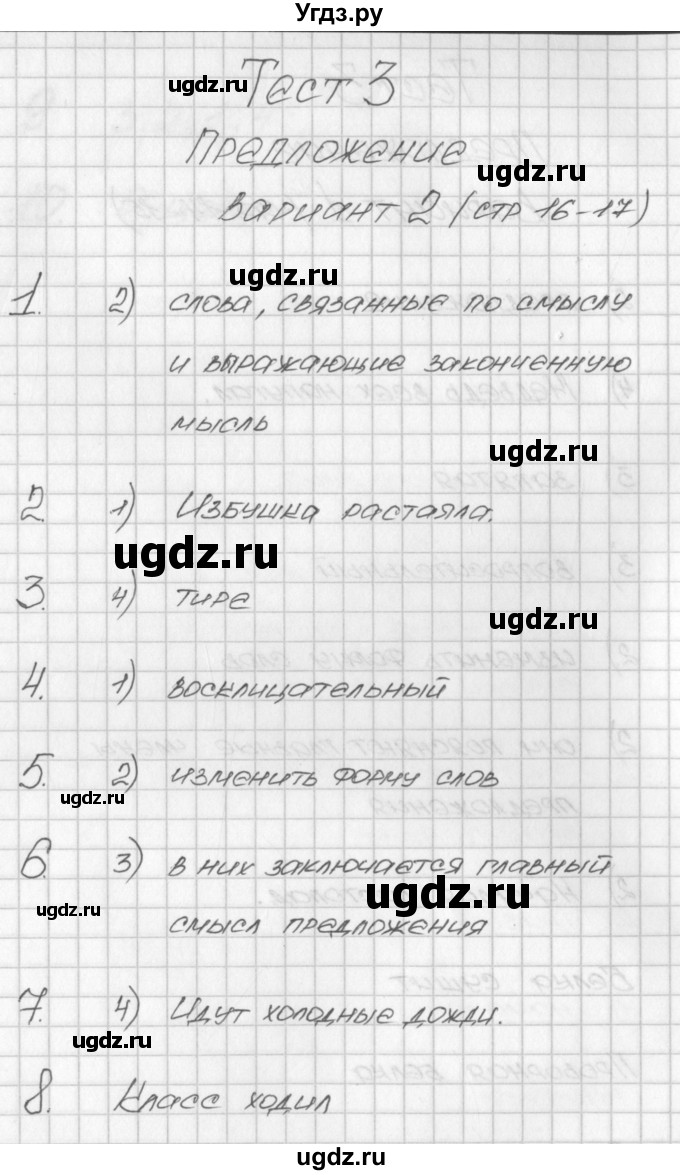 Угдз.ру
ugdz.ru Тест 3
Предложение ugdz.ru
Вариант 2 (стр 16-17)
ugdz.ru
1. 2) слова, связанные по смыслу
и выражающие законченную
мысль
ugdz.ru
2. 1) Избушка растаяла.
ugdz.ru
3. 4) тире ugdz.ru
4. 1) восклицательный
5. 2) изменить форму слов
ugdz.ru
6. 3) в них заключается главный
ugdz.ru ugdz.ru
смысл предложения
7. 4) Идут холодные дожди.
ugdz.ru ugdz.ru
8. Класс ходил
ugdz.ru